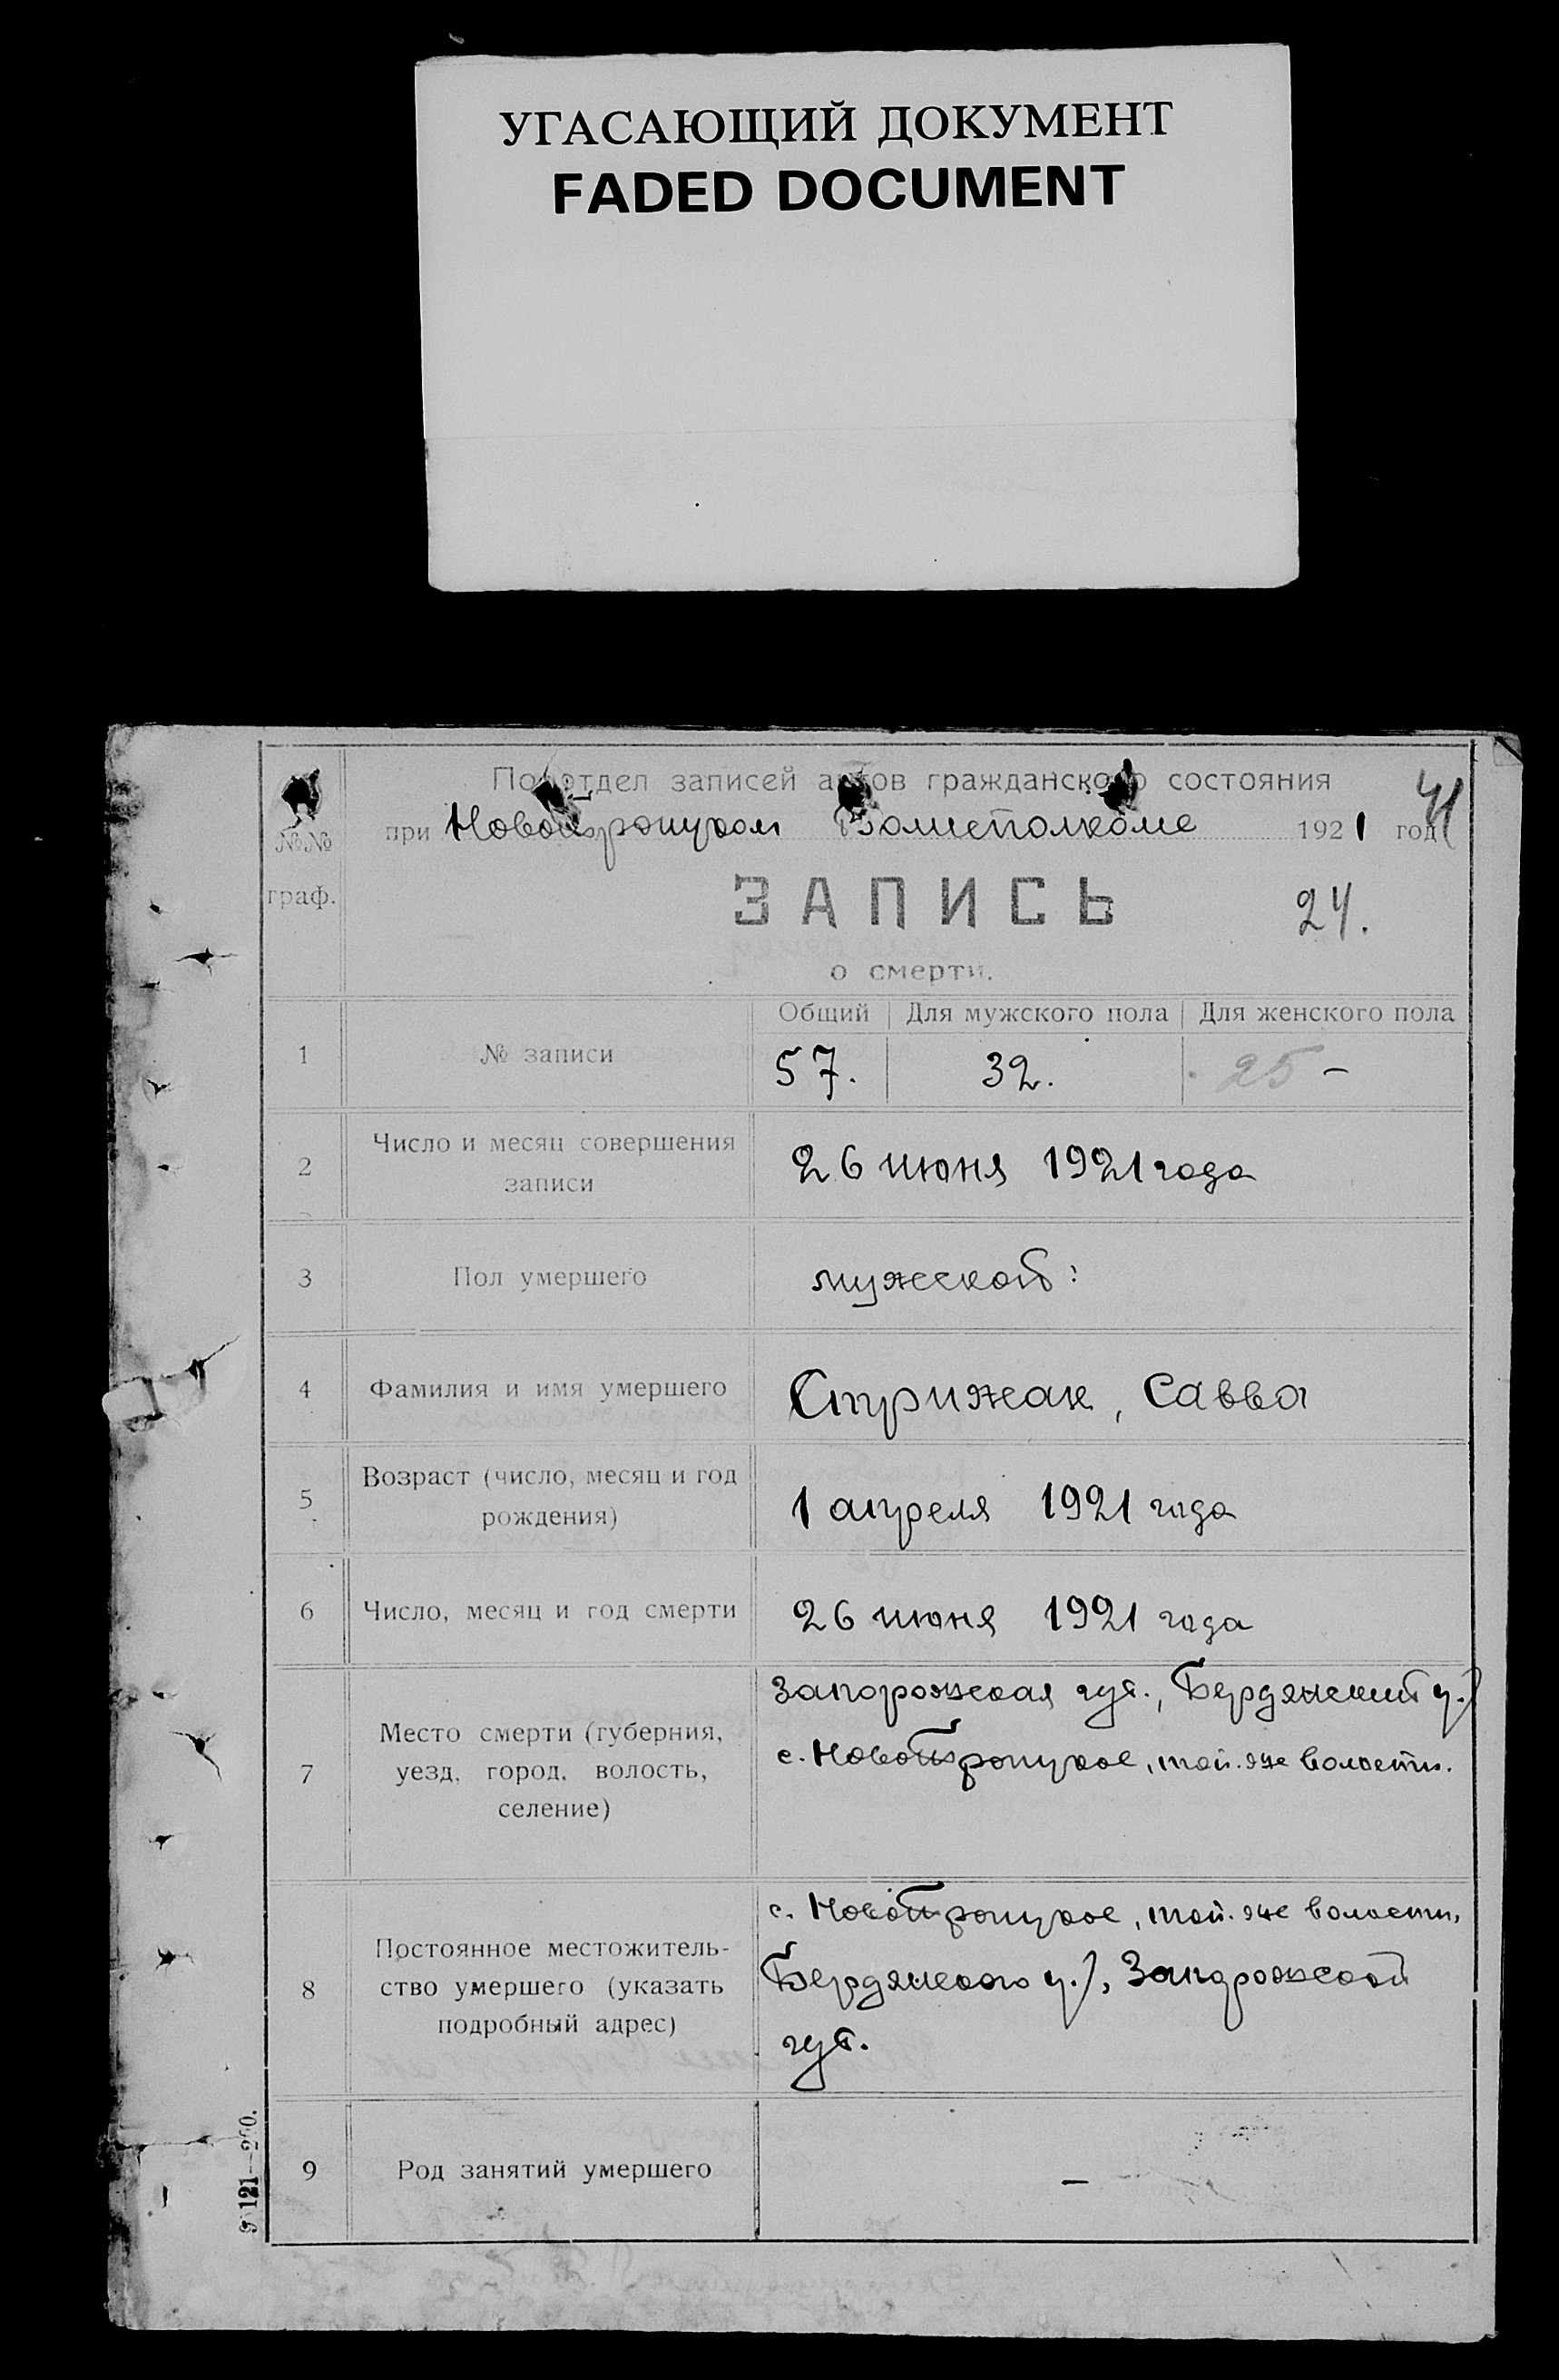 УГАСАЮЩИЙ ДОКУМЕНТ
FADED DOCUMENT
Подотдел записей актов гражданского состояния
41
при Новотроицком Волисполкоме 1921 год
№№
граф.
ЗАПИСЬ
24.
о смерти.
Общий Для мужского пола Для женского пола
1 № записи 57. 32. 25 –
2 Число и месяц совершения
записи
26 июня 1921 года
3 Пол умершего мужской:
4 Фамилия и имя умершего Стрижак, Савва
5 Возраст (число, месяц и год
рождения)
1 апреля 1921 года
6 Число, месяц и год смерти 26 июня 1921 года
7 Место смерти (губерния,
уезд, город, волость,
селение)
Запорожская губ., Бердянский у.)
с. Новотроицкое, той-же волости.
8 Постоянное местожитель-
ство умершего (указать
подробный адрес)
с. Новотроицкое, той-же волости,
Бердянского у.), Запорожской
губ.
9 Род занятий умершего –